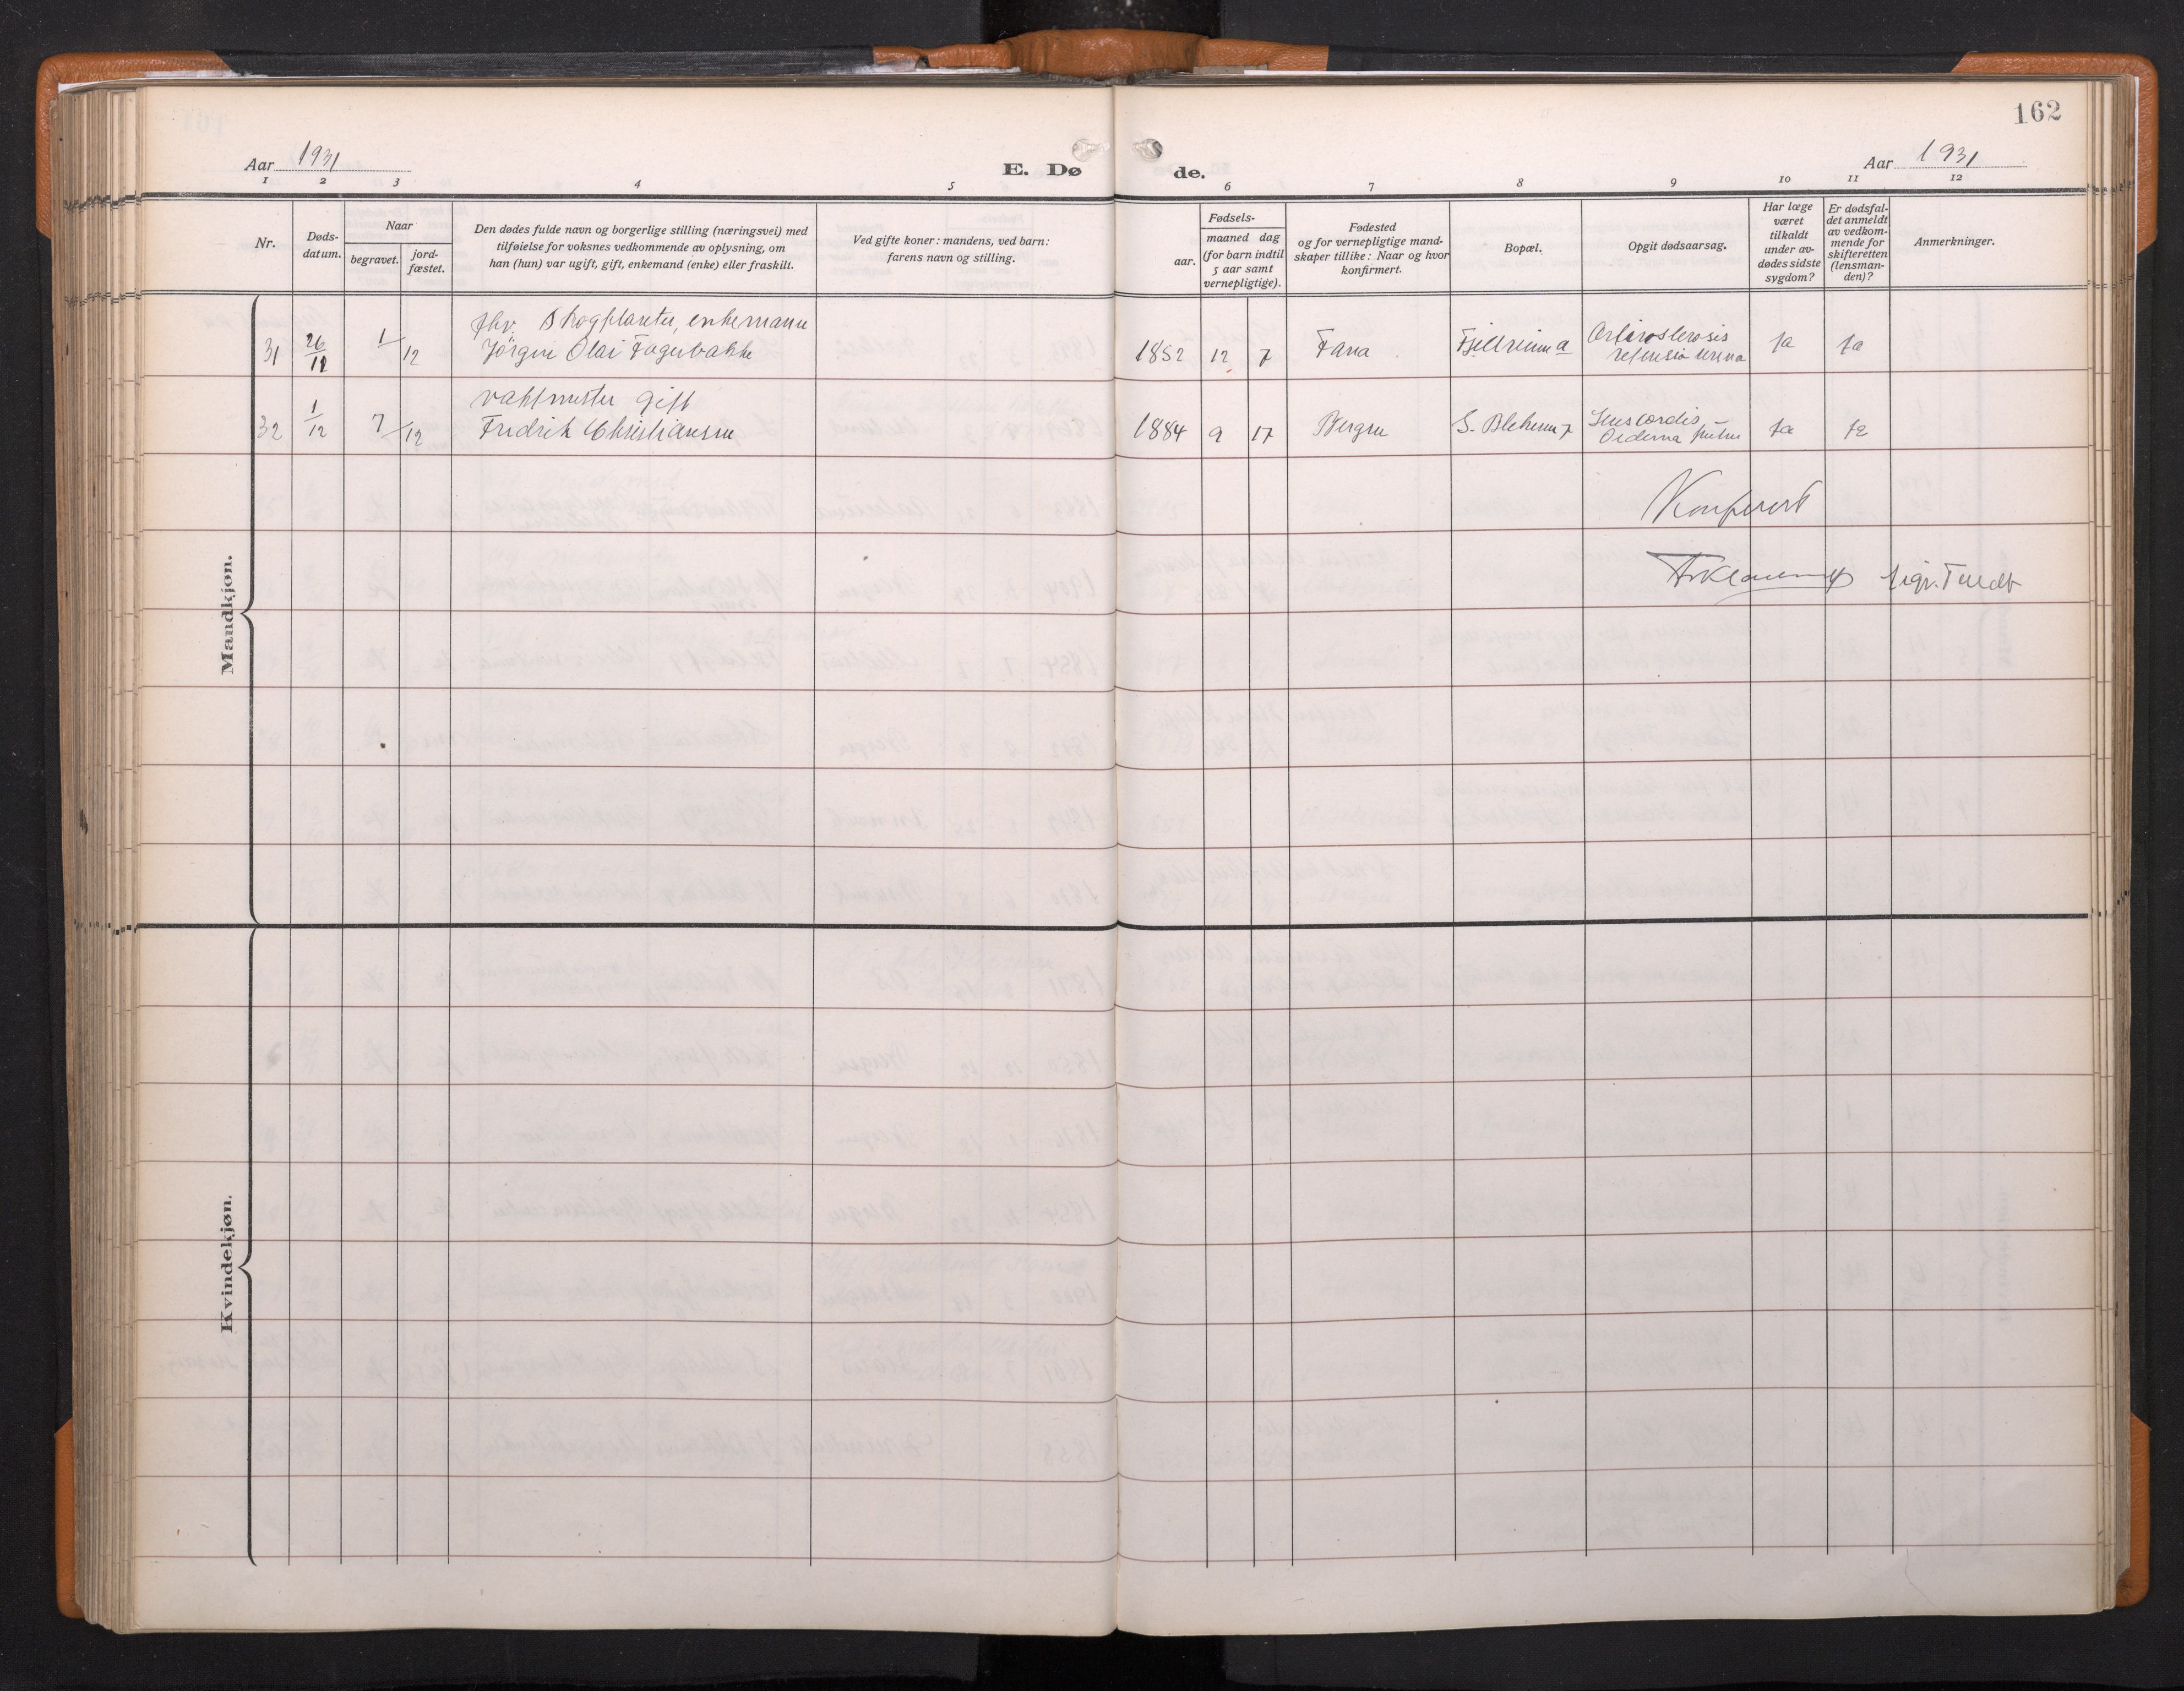 162
Aar 1931
E. Dø
de.
Aar 1931
1 2 3 4 5 6 7 8 9 10 11 12
Nr.
Døds-
datum.
Naar
begravet.
jord-
fæstet.
Den dødes fulde navn og borgerlige stilling (næringsvei) med
tilføielse for voksnes vedkommende av oplysning, om
han (hun) var ugift, gift, enkemand (enke) eller fraskilt.
Ved gifte koner: mandens, ved barn:
farens navn og stilling.
Fødsels-
aar.
maaned dag
(for barn indtil
5 aar samt
vernepligtige).
Fødested
og for vernepligtige mand-
skaper tillike: Naar og hvor
konfirmert.
Bopæl.
Opgit dødsaarsag.
Har læge
været
tilkaldt
under av-
dødes sidste
sygdom?
Er dødsfal-
det anmeldt
av vedkom-
mende for
skifteretten
(lensman-
den)?
Anmerkninger.
Mandkjøn.
fhv. Skogplanter, enkemann
31 26/12 1/12 Jörgen Olai Fagerbakke 1852 12 7 Fana ja ja
vaktmester gift
32 1/12 7/12 Fredrik Christiansen 1884 9 17 Bergen ja ja
Konferert
Kvindekjøn.